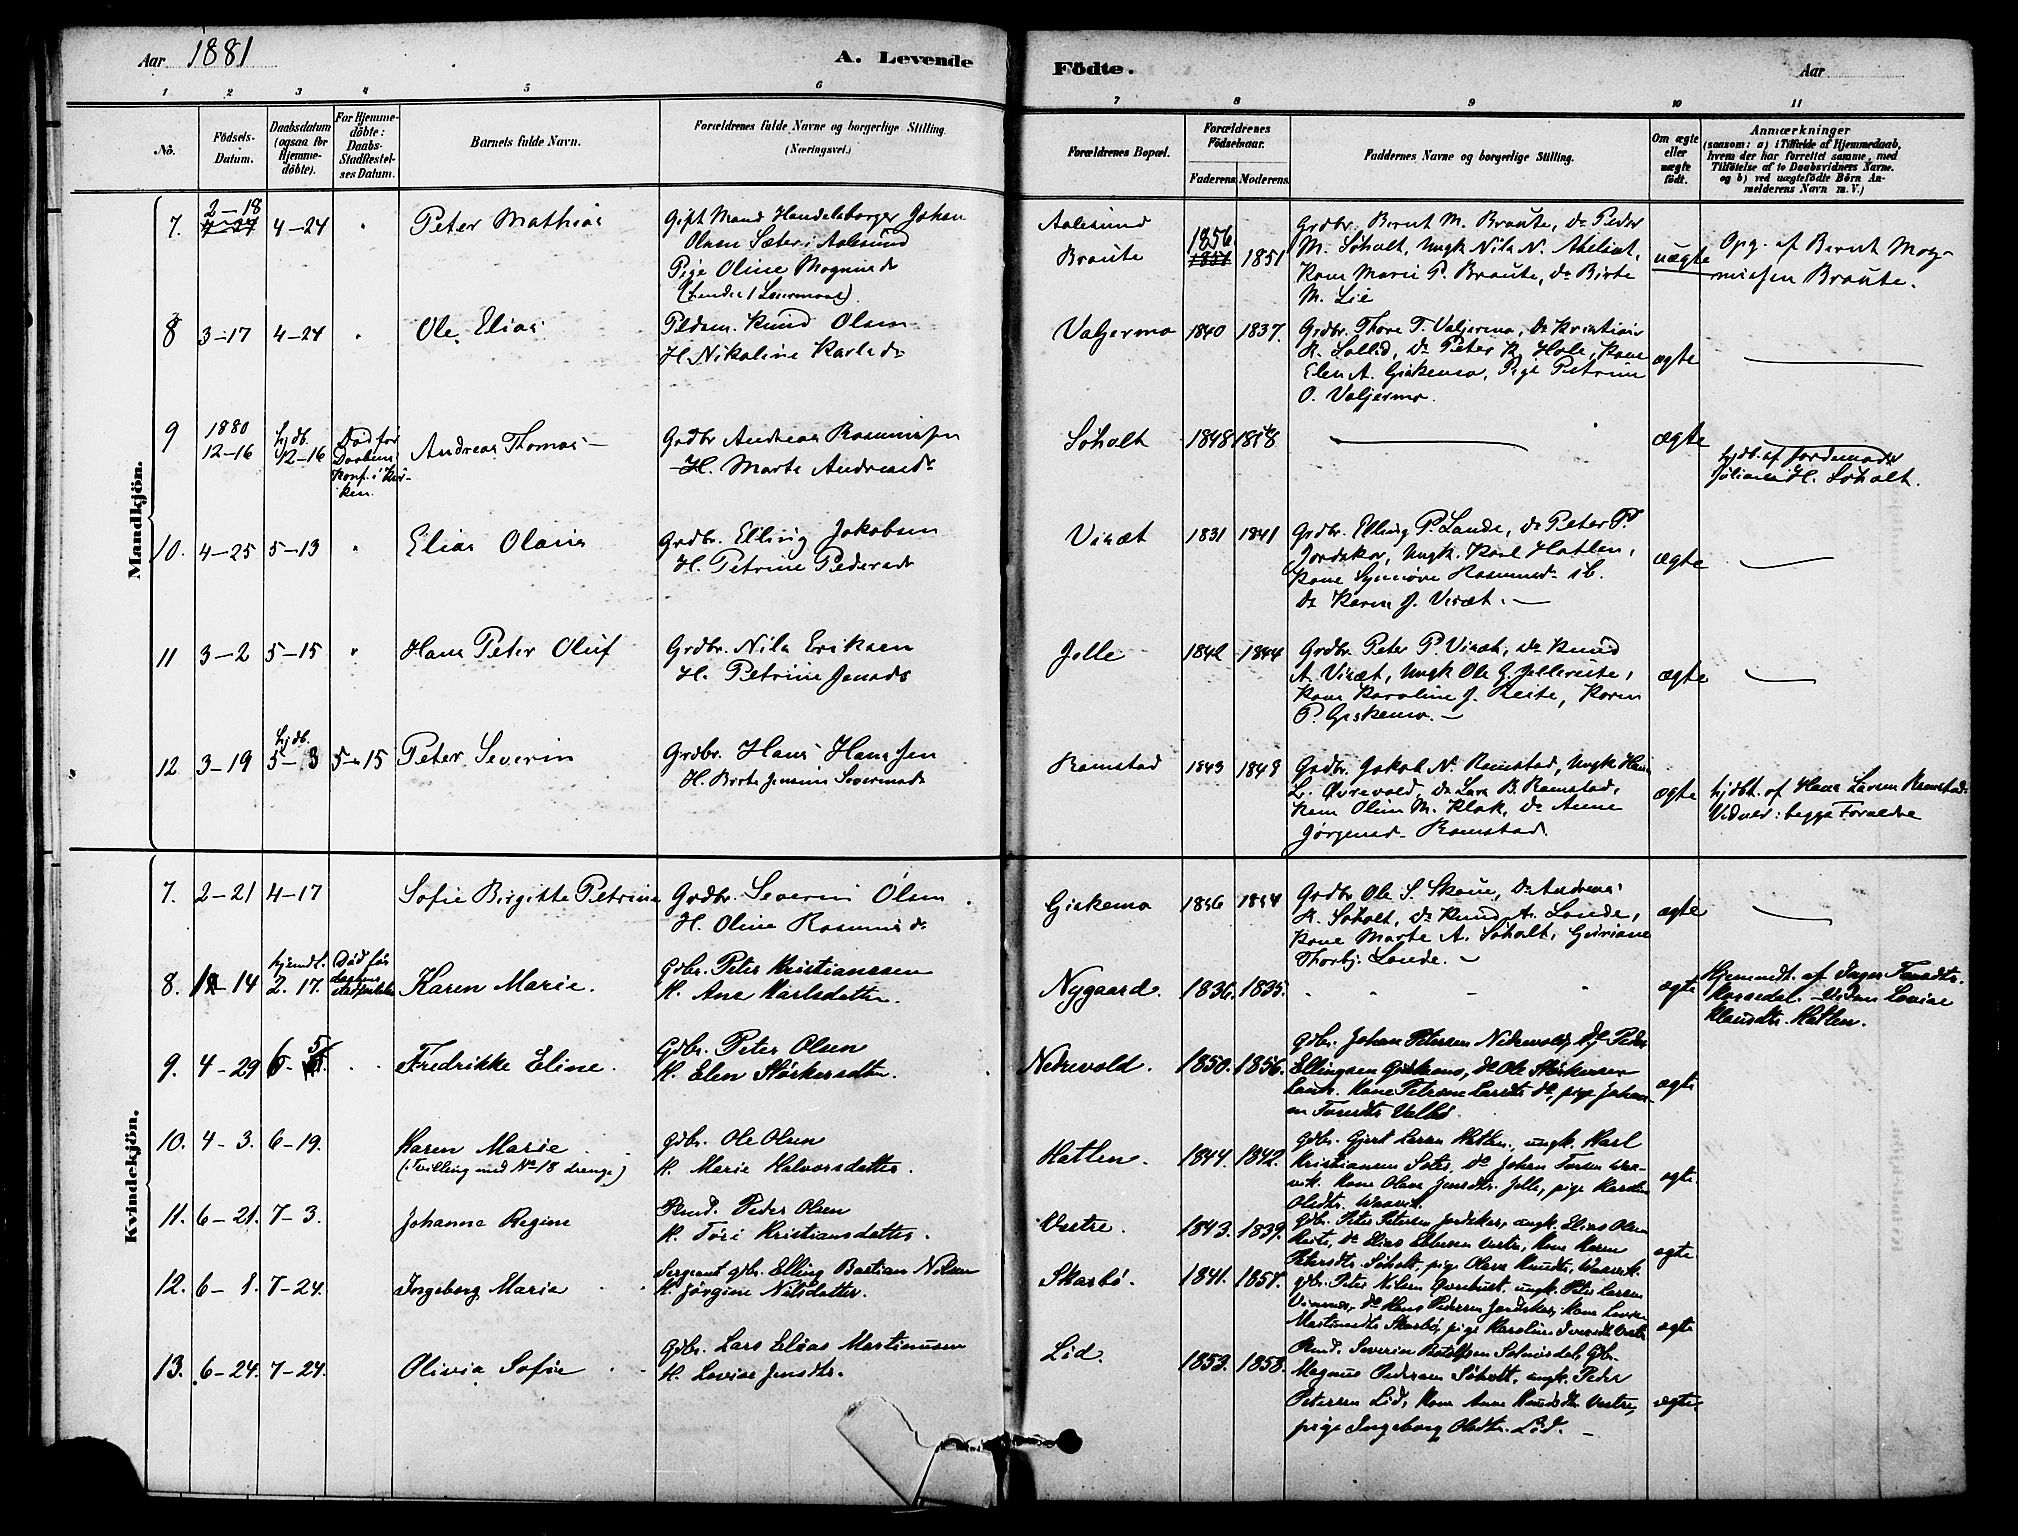 Aar 1881
A. Levende
Födte.
Aar
1 2 3 4 5 6 7 8 9 10 11
No.
Födsels-
Datum.
Daabsdatum
(ogsaa for
Hjemme-
döbte).
For Hjemme-
döbte:
Daabs-
Stadfæstel-
ses Datum.
Barnets fulde Navn.
Forældrenes fulde Navne og borgerlige Stilling.
(Næringsvei.)
Forældrenes Bopæl.
Forældrenes
Födselsaar.
Faderens. Moderens.
Faddernes Navne og borgerlige Stilling.
Om ægte
eller
uægte
födt.
Anmærkninger
(saasom: a) i Tilfælde af Hjemmedaab,
hvem der har forrettet samme, med
Tilföielse af to Daabsvidners Navne.
og b) ved uægtefödte Börn An-
melderens Navn m. V.)
Mandkjön.
7. 2-18 4-24 " Peter Mathias
Gift Mand Handelsborger Johan
Olsen Sæter i Aalesund
Pige Oline Mogensd.
Aalesund
Braute
1856 1851
Grdbr. Bernt M. Braute, do Peder
M. Søholt, Ungk Nils N.
Kone Marie P. Braute, do Birte
M. Lie
uægte
Opg. af Bernt Mog-
ensen Braute.
8 3-17 4-24 " Ole Elias
Pldsm. Knud Olsen
H. Nikoline Karlsdr
Valjermo 1840 1837.
Grdbr. Thore T. Valjermo, do Kristian
K. Sollid, do Peter K. Hole, Kone
Elen A. Giskemo, Pige Petrine
O. Valjermo.
ægte
9 1880
12-16 hjdb.
12-16 Død før
Daabens
Konf. i Kir-
ken.
Andreas Thomas
Grdbr Andreas Rasmussen
H. Marte Andreasdr
Søholt 1848
ægte
hjdb. af Jordemoder
H. Søholt.
10. 4-25 5-13 " Elias Olaus
Grdbr. Elling Jakobsen
H. Petrine Pedersdr
Viset 1831 1841
Grdbr. Elling P. Lande, do Peter P.
Jordskar, Ungk. Karl Hatlen,
Kone Synnøve Rasmusd. ib.
do Karen J. Viset.
ægte
11 3-2 5-15 " Hans Peter Oluf
Grdbr. Nils Eriksen
H. Petrine Jensdr
Jelle 1842 1844
Grdbr. Peter P Viset, do Knud
A. Viset, Ungk Ole G. Jelleseite,
Kone Karoline J. Reite, Karen
P. Giskemo.
ægte
12 3-19 hjdb.
5-3 5-15 Peter Severin
Grdbr. Hans Hanssen
H. Birte Jensine Severinsdr
Ramstad 1843 1848
Grdbr. Jakob N. Ramstad, Ungk Hans
L. Øvrevold, do Lars B. Ramstad,
Kone Oline M. Klok, do Anne
Jørgensd. Ramstad.
ægte
hjdbt. af Hans Larsen Ramstad.
Vidner: begge Forældre
Kvindekjön.
7. 2-21 4-17 Sofie Birgitte Petrine
Grdbr. Severin Olsen
H. Oline Rasmusdr
Giskemo 1846 1844
Grdbr Ole S. Skoue, do Andreas
K. Søholt, do Knud A. Lande,
Kone Marte A. Søholt, Guriane
Thorbj. Lande.
ægte
8. 14 hjemdt.
2. 17. Død før
Karen Marie.
Gdbr. Peter Kristianssen
H. Ane Karlsdatter
Nygaard. 1836. 1835.
ægte
Hjemmdt. af Inger Tarsdtr.
Vidner Lovise
Klausdtr. Hatlen.
9. 4-29 6-5 Fredrikke Eline.
Gdbr. Peter Olsen
H. Elen Størkersdtr.
Nedrevold. 1850. 1856.
Gdbr. Johan Petersen Nedrevold, do Peder
Ellingsen Giskemo, do Ole Størkersen
Kone Petrine Larsdtr do, pige Johan-
ægte
10. 4-3. 6-19. Karen Marie
(Tvilling med No 18 drenge)
Gdbr. Ole Olsen
H. Marie Halvorsdatter.
Hatlen. 1844. 1842.
Gdbr. Gjert Larsen Hatlen, ungk. Karl
Kristiansen do Johan Waa-
vik. Kone Olave Jensdtr. Jelle, pige
Olsdtr. Waavik.
ægte.
11. 6-21. 7-3. Johanne Regine
Peder Olsen
H. Kristiansdatter.
Vestre. 1843. 1839.
Gdbr. Peter Petersen Jordskar, ungk. Elias Olsen
Reite, do Elias Ebbesen Vestre, Kone Karen
Petersdtr. Søholt, pige Olave Knudsdtr. Waavik.
ægte
12. 6-8. 7-24. Ingeborg Marie
Sergeant Gdbr. Elling Bastian Nilsen
H. Jørgine Nilsdatter.
Skarbø. 1841. 1854.
Gdbr. Peter Nilsen ungk. Peter Larsen
do Hans Pedersen Jordskar, Kone
Martinusdtr Skarbø, pige Karoline
ægte
13. 6-24. 7-24. Olivia Sofie
Gdbr. Lars Elias Martinusen
H. Lovise Jensdtr.
Lid. 1853. 1858.
Severin Solnørdal, Gdbr.
Magnus Pedersen Søholt, ungk. Peder
Petersen Lid, Kone Anne Knudsdtr Vestre,
pige Ingeborg Olsdtr. Lid.
ægte.